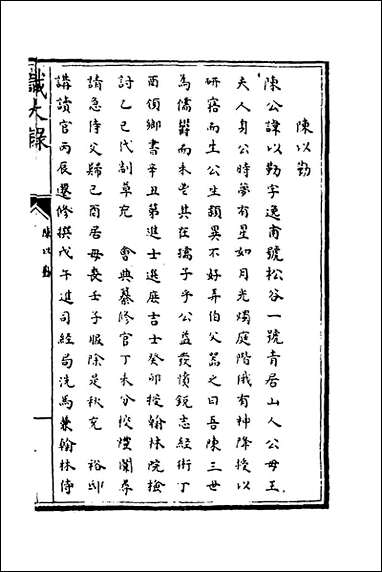 陳以勤
陳公諱以勤字逸甫號松谷一號青居山人公母王
夫人身公時夢有星如月光燭庭階俄有神降授以
研寤而生公生穎異不好弄伯父器之曰吾陳三世
為儒欝而未芒其在孺子乎公益發憤銳志經術丁
酉領鄉書辛丑第進士選庶吉士癸卯授翰林院檢
討乙巳代制草充　會典纂修官丁未分校禮闈尋
請急侍父歸己酉居母喪壬子服除是秋充　裕邸
講讀官丙辰遷修撰戊午進司經局洗馬兼翰林侍
識大錄
陳以勤